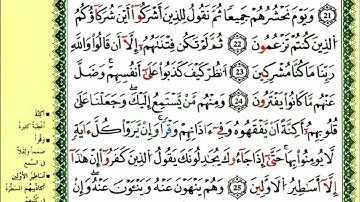 21 وَيَوْمَ نَحْشُرُهُمْ جَمِيعًا ثُمَّ نَقُولُ لِلَّذِينَ أَشْرَكُوٓا۟ أَيْنَ شُرَكَآؤُكُمُ
ٱلَّذِينَ كُنتُمْ تَزْعُمُونَ 22 ثُمَّ لَمْ تَكُن فِتْنَتُهُمْ إِلَّآ أَن قَالُوا۟ وَٱللَّهِ
رَبِّنَا مَا كُنَّا مُشْرِكِينَ 23 ٱنظُرْ كَيْفَ كَذَبُوا۟ عَلَىٰٓ أَنفُسِهِمْ ۚ وَضَلَّ
عَنْهُم مَّا كَانُوا۟ يَفْتَرُونَ 24 وَمِنْهُم مَّن يَسْتَمِعُ إِلَيْكَ ۖ وَجَعَلْنَا عَلَىٰ
قُلُوبِهِمْ أَكِنَّةً أَن يَفْقَهُوهُ وَفِىٓ ءَاذَانِهِمْ وَقْرًا ۚ وَإِن يَرَوْا۟ كُلَّ ءَايَةٍ
لَّا يُؤْمِنُوا۟ بِهَا ۚ حَتَّىٰٓ إِذَا جَآءُوكَ يُجَٰدِلُونَكَ يَقُولُ ٱلَّذِينَ كَفَرُوٓا۟ إِنْ هَٰذَآ
إِلَّآ أَسَٰطِيرُ ٱلْأَوَّلِينَ 25 وَهُمْ يَنْهَوْنَ عَنْهُ وَيَنْـَٔوْنَ عَنْهُ ۖ وَإِن
أَكِنَّةً
أغطية كثيرة
وَقْرًا
صمما وثقلا
في السمع
أساطير الأولين
أكاذيبهم المسطرة
في كتبهم